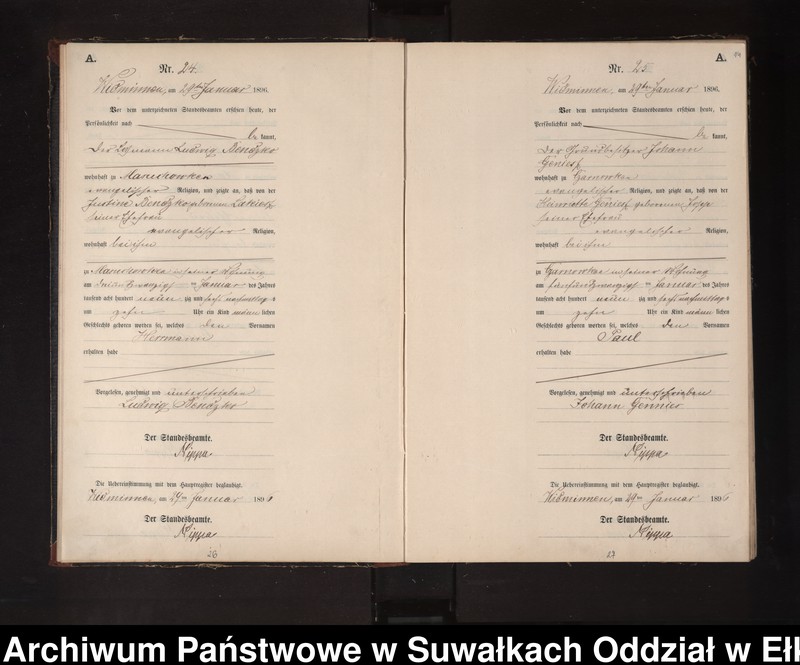 A.
Nr. 24
Widminnen, am 29ten Januar 1896.
Vor dem unterzeichneten Standesbeamten erschien heute, der
Persönlichkeit nach
be kannt,
der Losmann Ludwig Bendzko
wohnhaft zu
evangelischer Religion, und zeigte an, daß von der
Justine Bendzko geborenen
seiner Ehefrau
evangelischer Religion,
wohnhaft bei ihm
zu in seiner Wohnung
am Januar des Jahres
tausend acht hundert neun zig und sechs nachmittags
um Uhr ein Kind männ lichen
Geschlechts geboren worden sei, welches den Vornamen
Herrmann
erhalten habe
Vorgelesen, genehmigt und unterschrieben
Ludwig Bendzko
Der Standesbeamte.
Nippa
Die Uebereinstimmung mit dem Hauptregister beglaubigt.
Widminnen, am 29ten Januar 1896
Der Standesbeamte.
Nippa
26
A.
Nr. 25
Widminnen, am 29ten Januar 1896.
Vor dem unterzeichneten Standesbeamten erschien heute, der
Persönlichkeit nach
be kannt,
der Grundbesitzer Johann
wohnhaft zu
evangelischer Religion, und zeigte an, daß von der
Henriette geborenen
seiner Ehefrau
evangelischer Religion,
wohnhaft bei ihm
zu in seiner Wohnung
am fünfundzwanzigsten Januar des Jahres
tausend acht hundert neun zig und sechs nachmittags
um Uhr ein Kind männ lichen
Geschlechts geboren worden sei, welches den Vornamen
Paul
erhalten habe
Vorgelesen, genehmigt und unterschrieben
Johann
Der Standesbeamte.
Nippa
Die Uebereinstimmung mit dem Hauptregister beglaubigt.
Widminnen, am 29ten Januar 1896
Der Standesbeamte.
Nippa
27
Archiwum Państwowe w Suwałkach Oddział w Ełk